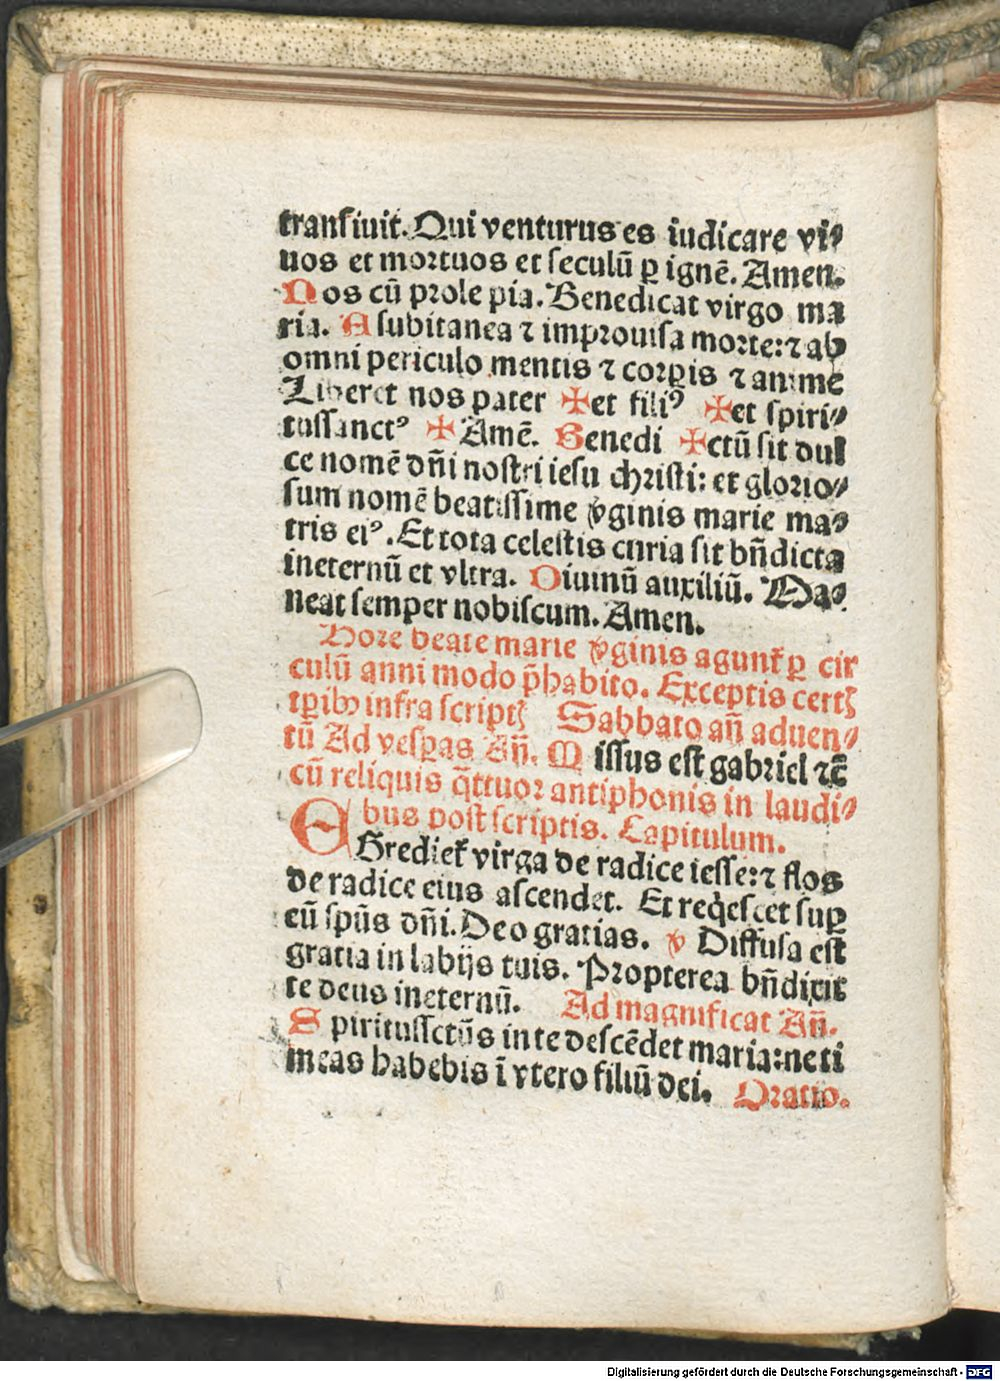 tranſiuit. Qui venturus es iudicare vi⸗
uos et mortuos et ſeculū ꝑ ignē. Amen.
Nos cū prole pia. Benedicat virgo ma
ria. A ſubitanea ⁊ improuiſa morte: ⁊ ab
omni periculo mentis ⁊ corꝑis ⁊ anime
Liberet nos pater ✠ et filiꝰ ✠ et ſpiri⸗
tuſſanctꝰ ✠ Amē. Benedi ✠ ctū ſit dul
ce nomē dn̄i noſtri ieſu chriſti: et glorio⸗
ſum nomē beatiſſime v̓ginis marie ma⸗
tris eiꝰ. Et tota celeſtis curia ſit bn̄dicta
ineternū et vltra. Diuinū auxiliū. Ma⸗
neat ſemper nobiſcum. Amen.
Hore beate marie v̓ginis agunt᷑ ꝑ cir
culū anni modo p̄habito. Exceptis certꝭ
tꝑibꝫ infra ſcriptꝭ Sabbato an̄ aduen⸗
tū Ad veſꝑas An̄. Miſſus eſt gabriel ⁊c̄
cū reliquis q̄ttuor antiphonis in laudi⸗
bus poſt ſcriptis. Capitulum.
EGrediet᷑ virga de radice ieſſe: ⁊ flos
de radice eius aſcendet. Et reqͥeſcet ſuꝑ
eū ſpūs dn̄i. Deo gratias. v̓ Diffuſa eſt
gratia in labijs tuis. Propterea bn̄dixit
te deus ineternū. Ad magnificat An̄.
Spirituſſctūs in te deſcēdet maria: ne ti
meas habebis ī vtero filiū dei. Oratio.
Digitalisierung gefördert durch die Deutsche Forschungsgemeinschaft - DFG